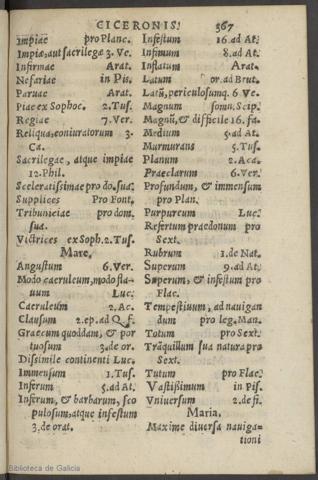 CICERONIS. 367
Impiae pro Planc.
Impiae, aut sacrilegae 3. Ve.
Infirmae Arat.
Nefariae in Pis.
Paruae Arat.
Piae ex Sophoc. 2. Tus.
Regiae 7. Ver.
Reliquae coniuratorum 3.
Ca.
Sacrilegae, atque impiae
12. Phil.
Sceleratissimae pro do. sua.
Supplices Pro Font.
Tribuniciae pro dom.
sua.
Victrices ex Soph. 2. Tus.
Mare.
Angustum 6. Ver.
Modo caeruleum, modo fla-
uum Luc.
Caeruleum 2. Ac.
Clausum 2. ep. ad Q. f.
Graecum quoddam, & por
tuosum 3. de or.
Dissimile continenti Luc.
Immensum 1. Tus.
Inferum 5. ad At.
Inferum, & barbarum, sco
pulosum, atque infestum
3. de orat.
Infestum 16. ad At.
Infimum 8. ad At.
Inflatum Arat.
Latum or. ad Brut.
Latũ, periculosumq. 6. Ve.
Magnum somn. Scip.
Magnũ, & difficile 16. fa.
Medium 5. ad At.
Murmurans 5. Tus.
Planum 2. Aca.
Praeclarum 6. Ver.
Profundum, & immensum
pro Plan.
Purpureum Luc.
Refertum praedonum pro
Sext.
Rubrum 1. de Nat.
Superum 9. ad At.
Superum, & infestum pro
Flac.
Tempestiuum, ad nauigan
dum pro leg. Man.
Totum pro Sext.
Trãquilum sua natura pro
Sext.
Tutum pro Flac.
Vastissimum in Pis.
Vniuersum 2. de fi.
Maria.
Maxime diuersa nauiga-
tioni
Biblioteca de Galicia